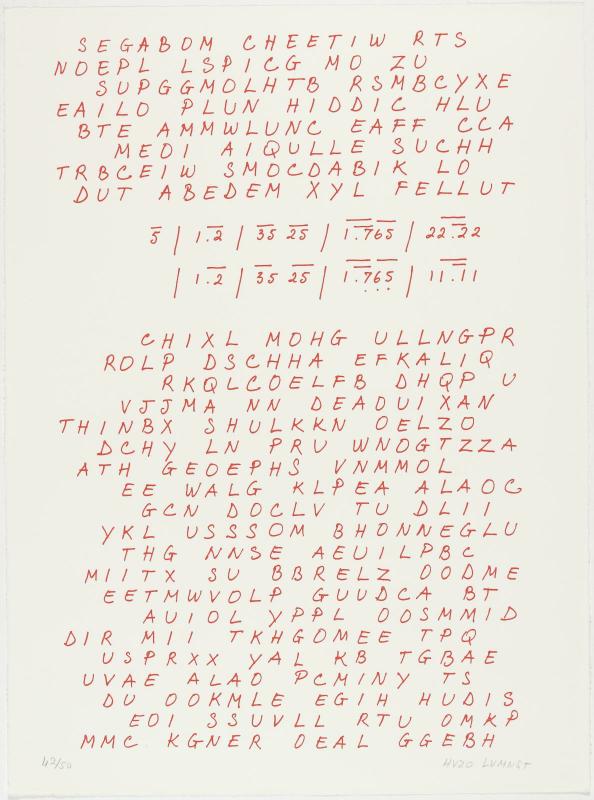 SEGABOM CHEETIW RTS
NOEPL LSPICG MO ZU
SUPGGMOLHTB RSMBCYXE
EAILO PLUN HIDDIC HLU
BTE AMMWLUNC EAFF CCA
MEDI AIQULLE SUCHH
TRBCEIW SMOCDABIK LO
DUT ABEDEM XYL FELLUT
5 | 1.2 | 35 25 | 1.765 | 22.22
| 1.2 | 35 25 | 1.765 | 11.11
CHIXL MOHG ULLNGPR
ROLP DSCHHA EFKALIQ
RKQLCOELFB DHQP U
VJJMA NN DEAOUIXAN
THINBX SHULKKN OELZO
DCHY LN PRU WNOGTZZA
ATH GEOEPHS VNMMOL
EE WALG KLPEA ALAOC
GCN DOCLV TU DLII
YKL USSSOM BHONNEGLU
THG NNSE AEUILPBC
MIITX SU BBRELZ OODME
EETMWVOLP GUUDCA BT
AUIOL YPPL OOSMMID
DIR MII TKHGOMEE TPQ
USPRXX YAL KB TGBAE
UVAE ALAO PCMINY TS
DU OOKMLE EGIH HUDIS
EOI SSUVLL RTU OMKP
MMC KGNER OEAL GGEBH
42/50